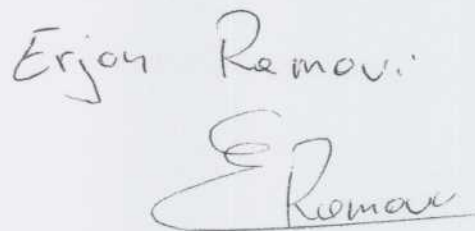 Erjon Ramovi
ERamovi